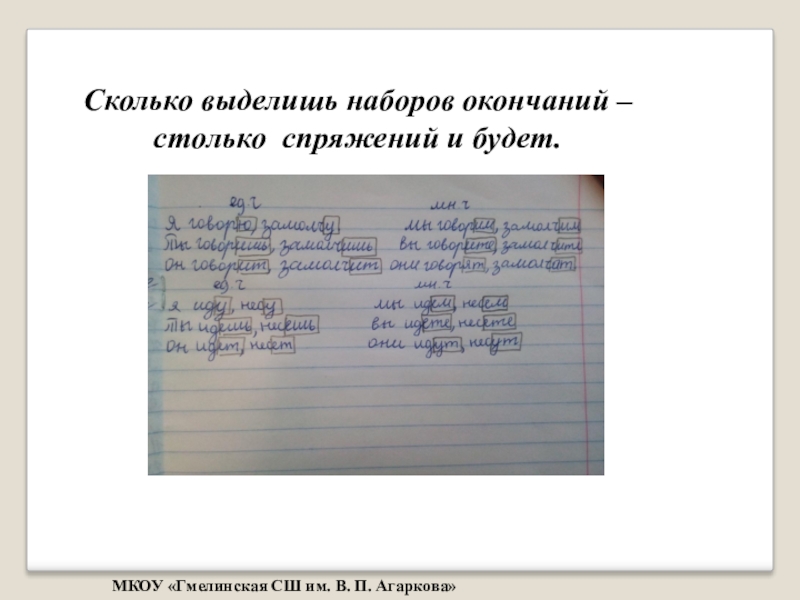 Сколько выделишь наборов окончаний –
столько спряжений и будет.
ед.ч мн.ч
Я говорю, замолчу мы говорим, замолчим
Ты говоришь, замолчишь вы говорите, замолчите
Он говорит, замолчит они говорят, замолчат
ед.ч мн.ч
Я иду, несу мы идем, несем
Ты идешь, несешь вы идете, несете
Он идет, несет они идут, несут
МКОУ «Гмелинская СШ им. В. П. Агаркова»